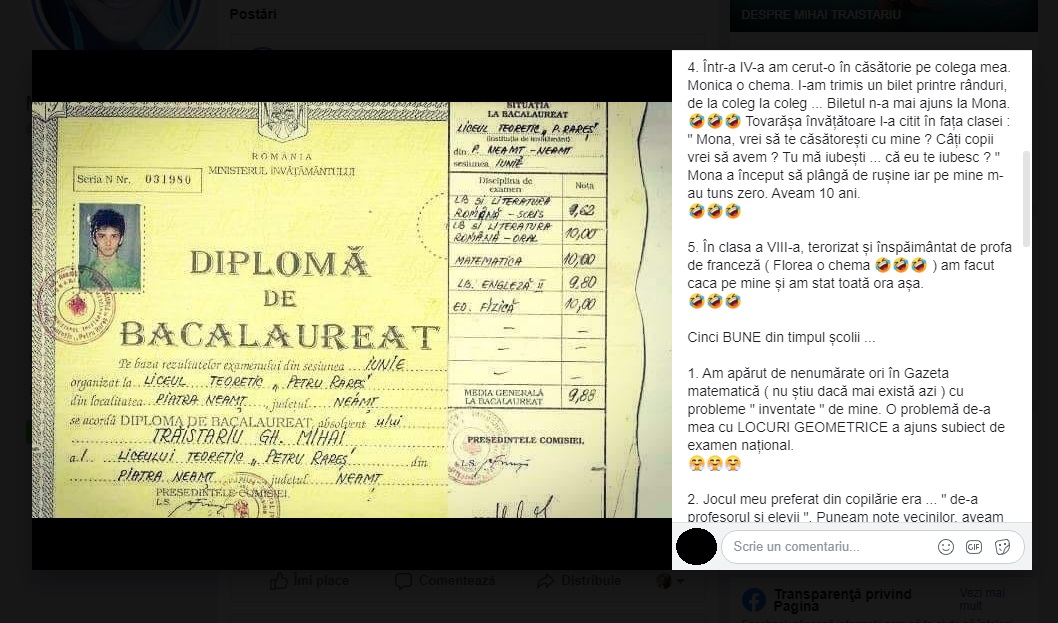 Postări
DESPRE MIHAI TRAISTARIU
ROMÂNIA
MINISTERUL INVĂŢĂMÂNTULUI
Seria N Nr. 031980
DIPLOMĂ
DE
BACALAUREAT
Pe baza rezultatelor examenului din sesiunea IUNIE
organizat la LICEUL TEORETIC „PETRU RAREŞ"
din localitatea PIATRA NEAMŢ, judeţul NEAMŢ
se acordă DIPLOMA DE BACALAUREAT, absolvent ului
TRAISTARIU GH. MIHAI
a.l LICEULUI TEORETIC „PETRU RAREŞ" din
PIATRA NEAMŢ judeţul NEAMŢ
PREŞEDINTELE COMISIEI,
L.S.
SITUAŢIA
LA BACALAUREAT
LICEUL TEORETIC „P. RAREŞ"
(instituţia de învăţământ)
din P. NEAMŢ - NEAMŢ
sesiunea IUNIE
Disciplina de examen Nota
LB ŞI LITERATURA ROMÂNĂ - SCRIS 9,62
LB ŞI LITERATURA ROMÂNĂ - ORAL 10,00
MATEMATICA 10,00
LB. ENGLEZĂ II 9,80
ED. FIZICĂ 10,00
MEDIA GENERALĂ LA BACALAUREAT 9,88
PREŞEDINTELE COMISIEI,
L.S.
4. Într-a IV-a am cerut-o în căsătorie pe colega mea.
Monica o chema. I-am trimis un bilet printre rânduri,
de la coleg la coleg ... Biletul n-a mai ajuns la Mona.
🤣🤣🤣 Tovarășa învățătoare l-a citit în fața clasei :
" Mona, vrei să te căsătorești cu mine ? Câți copii
vrei să avem ? Tu mă iubești ... că eu te iubesc ? "
Mona a început să plângă de rușine iar pe mine m-
au tuns zero. Aveam 10 ani.
🤣🤣🤣
5. În clasa a VIII-a, terorizat și înspăimântat de profa
de franceză ( Florea o chema 🤣🤣🤣 ) am facut
caca pe mine și am stat toată ora așa.
🤣🤣🤣
Cinci BUNE din timpul școlii ...
1. Am apărut de nenumărate ori în Gazeta
matematică ( nu știu dacă mai există azi ) cu
probleme " inventate " de mine. O problemă de-a
mea cu LOCURI GEOMETRICE a ajuns subiect de
examen național.
😤😤😤
2. Jocul meu preferat din copilărie era ... " de-a
profesorul și elevii ". Puneam note vecinilor, aveam
Scrie un comentariu...
GIF
Îmi place
Comentează
Distribuie
Transparență privind
Pagina
Vezi mai
mult